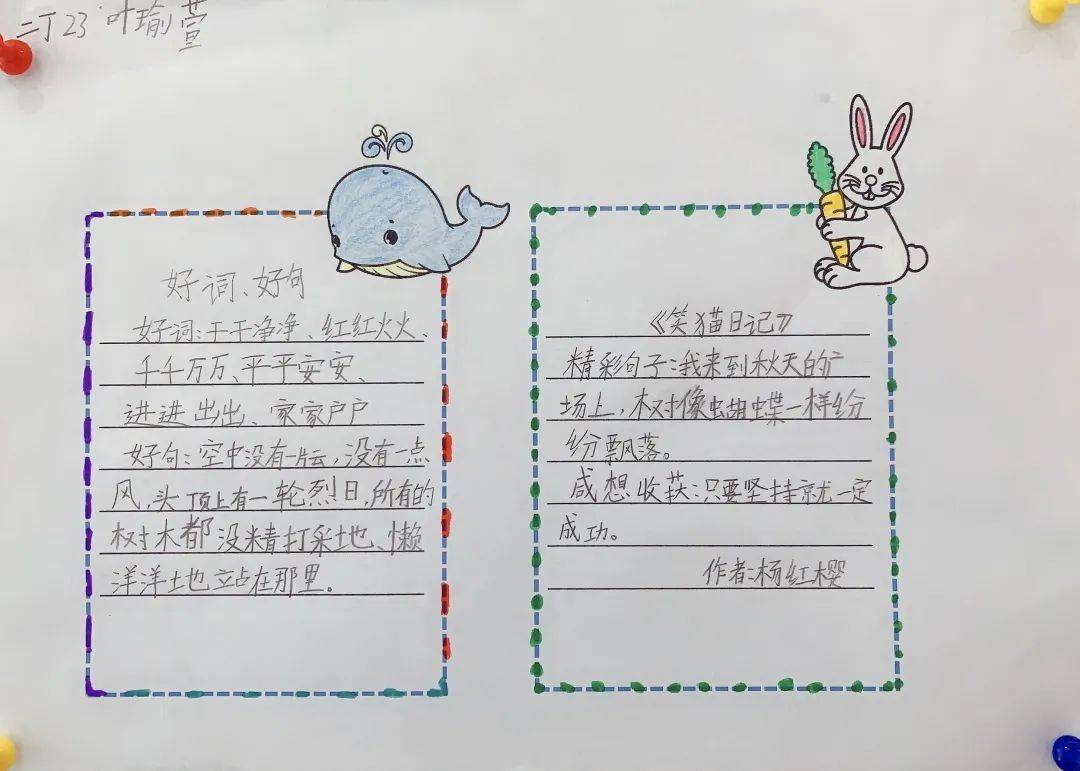 二丁23 叶瑜萱
好词、好句
好词:干干净净、红红火火、
千千万万、平平安安、
进进出出、家家户户
好句:空中没有一片云,没有一点
风,头顶上有一轮烈日,所有的
树木都没精打采地、懒
洋洋土也立占在那里。
《笑猫日记》
精彩句子:我来到秋天的广
场上,树像蝴蝶一样纷
纷飘落。
感想收获:只要坚持就一定
成功。
作者:杨红樱